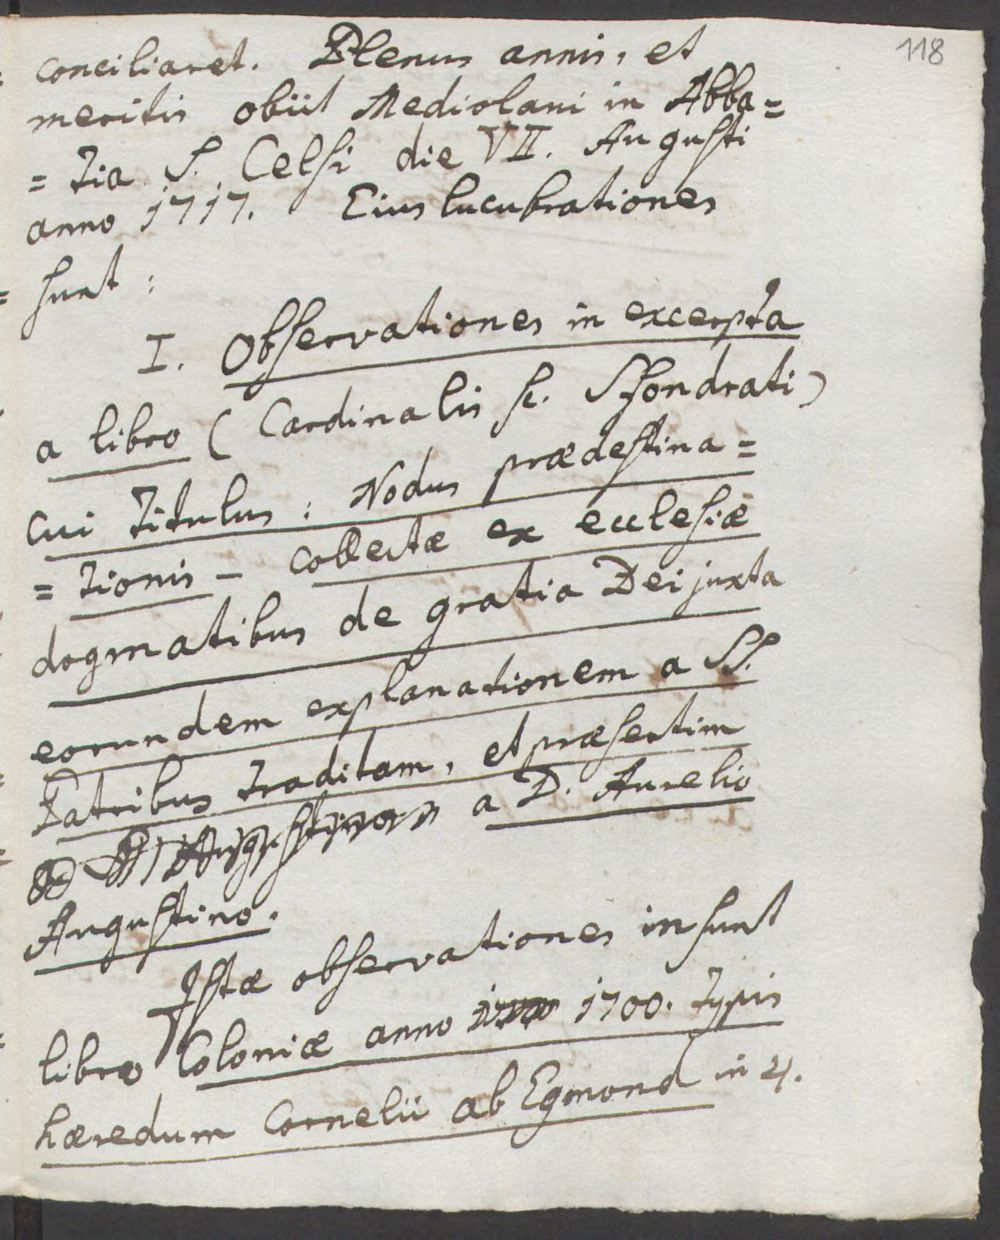 118
conciliaret. Plenus annis, et
meritis obiit Mediolani in Abba=
=tia S. Celsi die VII. Augusti
anno 1717. Eius lucubrationes
sunt:
I. Observationes in excerpta
a libro (Cardinalis sc. Sfondrati)
cui titulus: Nodus prædestina=
=tionis – collectæ ex ecclesiæ
dogmatibus de gratia Dei juxta
eorundem explanationem a SS.
Patribus traditam, et præsertim
a D. Aurelio
Augustino.
Istæ observationes insunt
libro Coloniæ anno 1700. typis
hæredum Cornelii ab Egmond in 4.